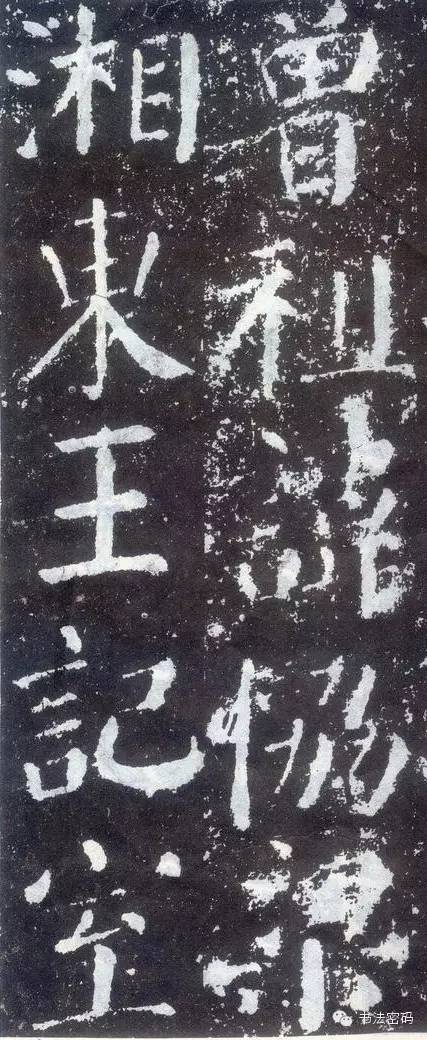 曾祖諱恊梁
湘東王記室
书法密码